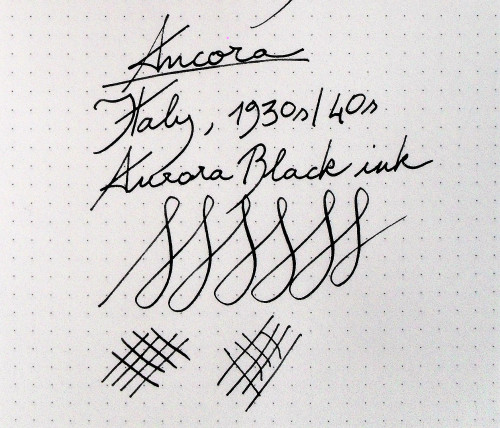 Ancora
Italy, 1930s/40s
Aurora Black ink